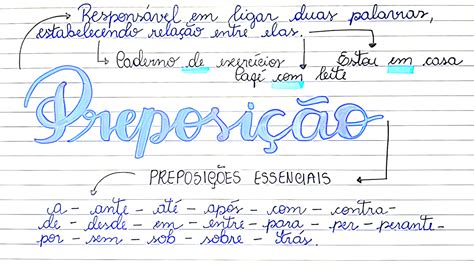 Responsável em ligar duas palavras,
estabelecendo relação entre elas.
Caderno de exercícios
Estou em casa
Café com leite
Preposição
PREPOSIÇÕES ESSENCIAIS
a - ante - até - após - com - contra -
de - desde - em - entre - para - per - perante -
por - sem - sob - sobre - trás.